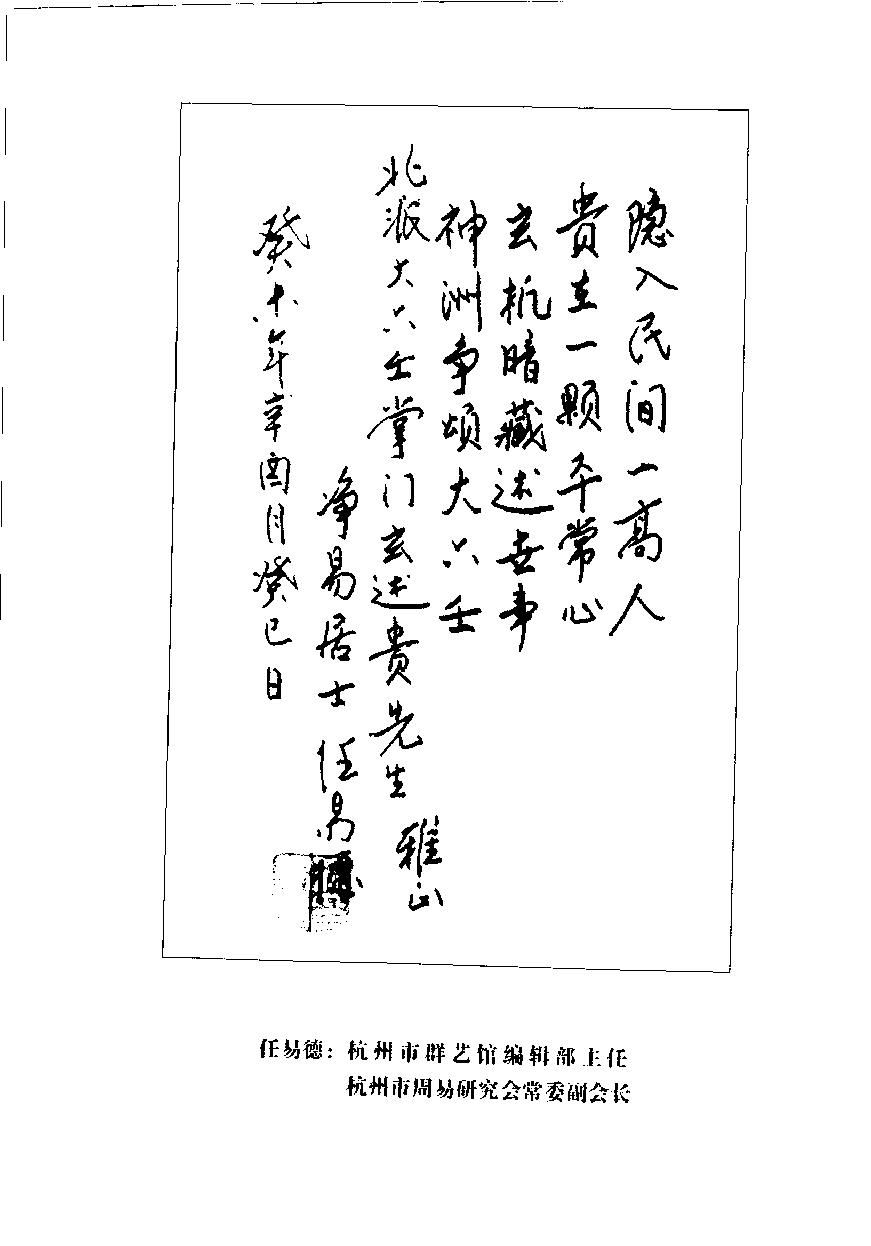 隐入民间一高人
贵在一颗平常心
玄机暗藏述世事
神洲争颂大六壬
北派大六壬掌门玄述贵先生 雅正
净易居士 任易德
癸未年辛酉月癸巳日
任易德：杭州市群艺馆编辑部主任
杭州市周易研究会常委副会长